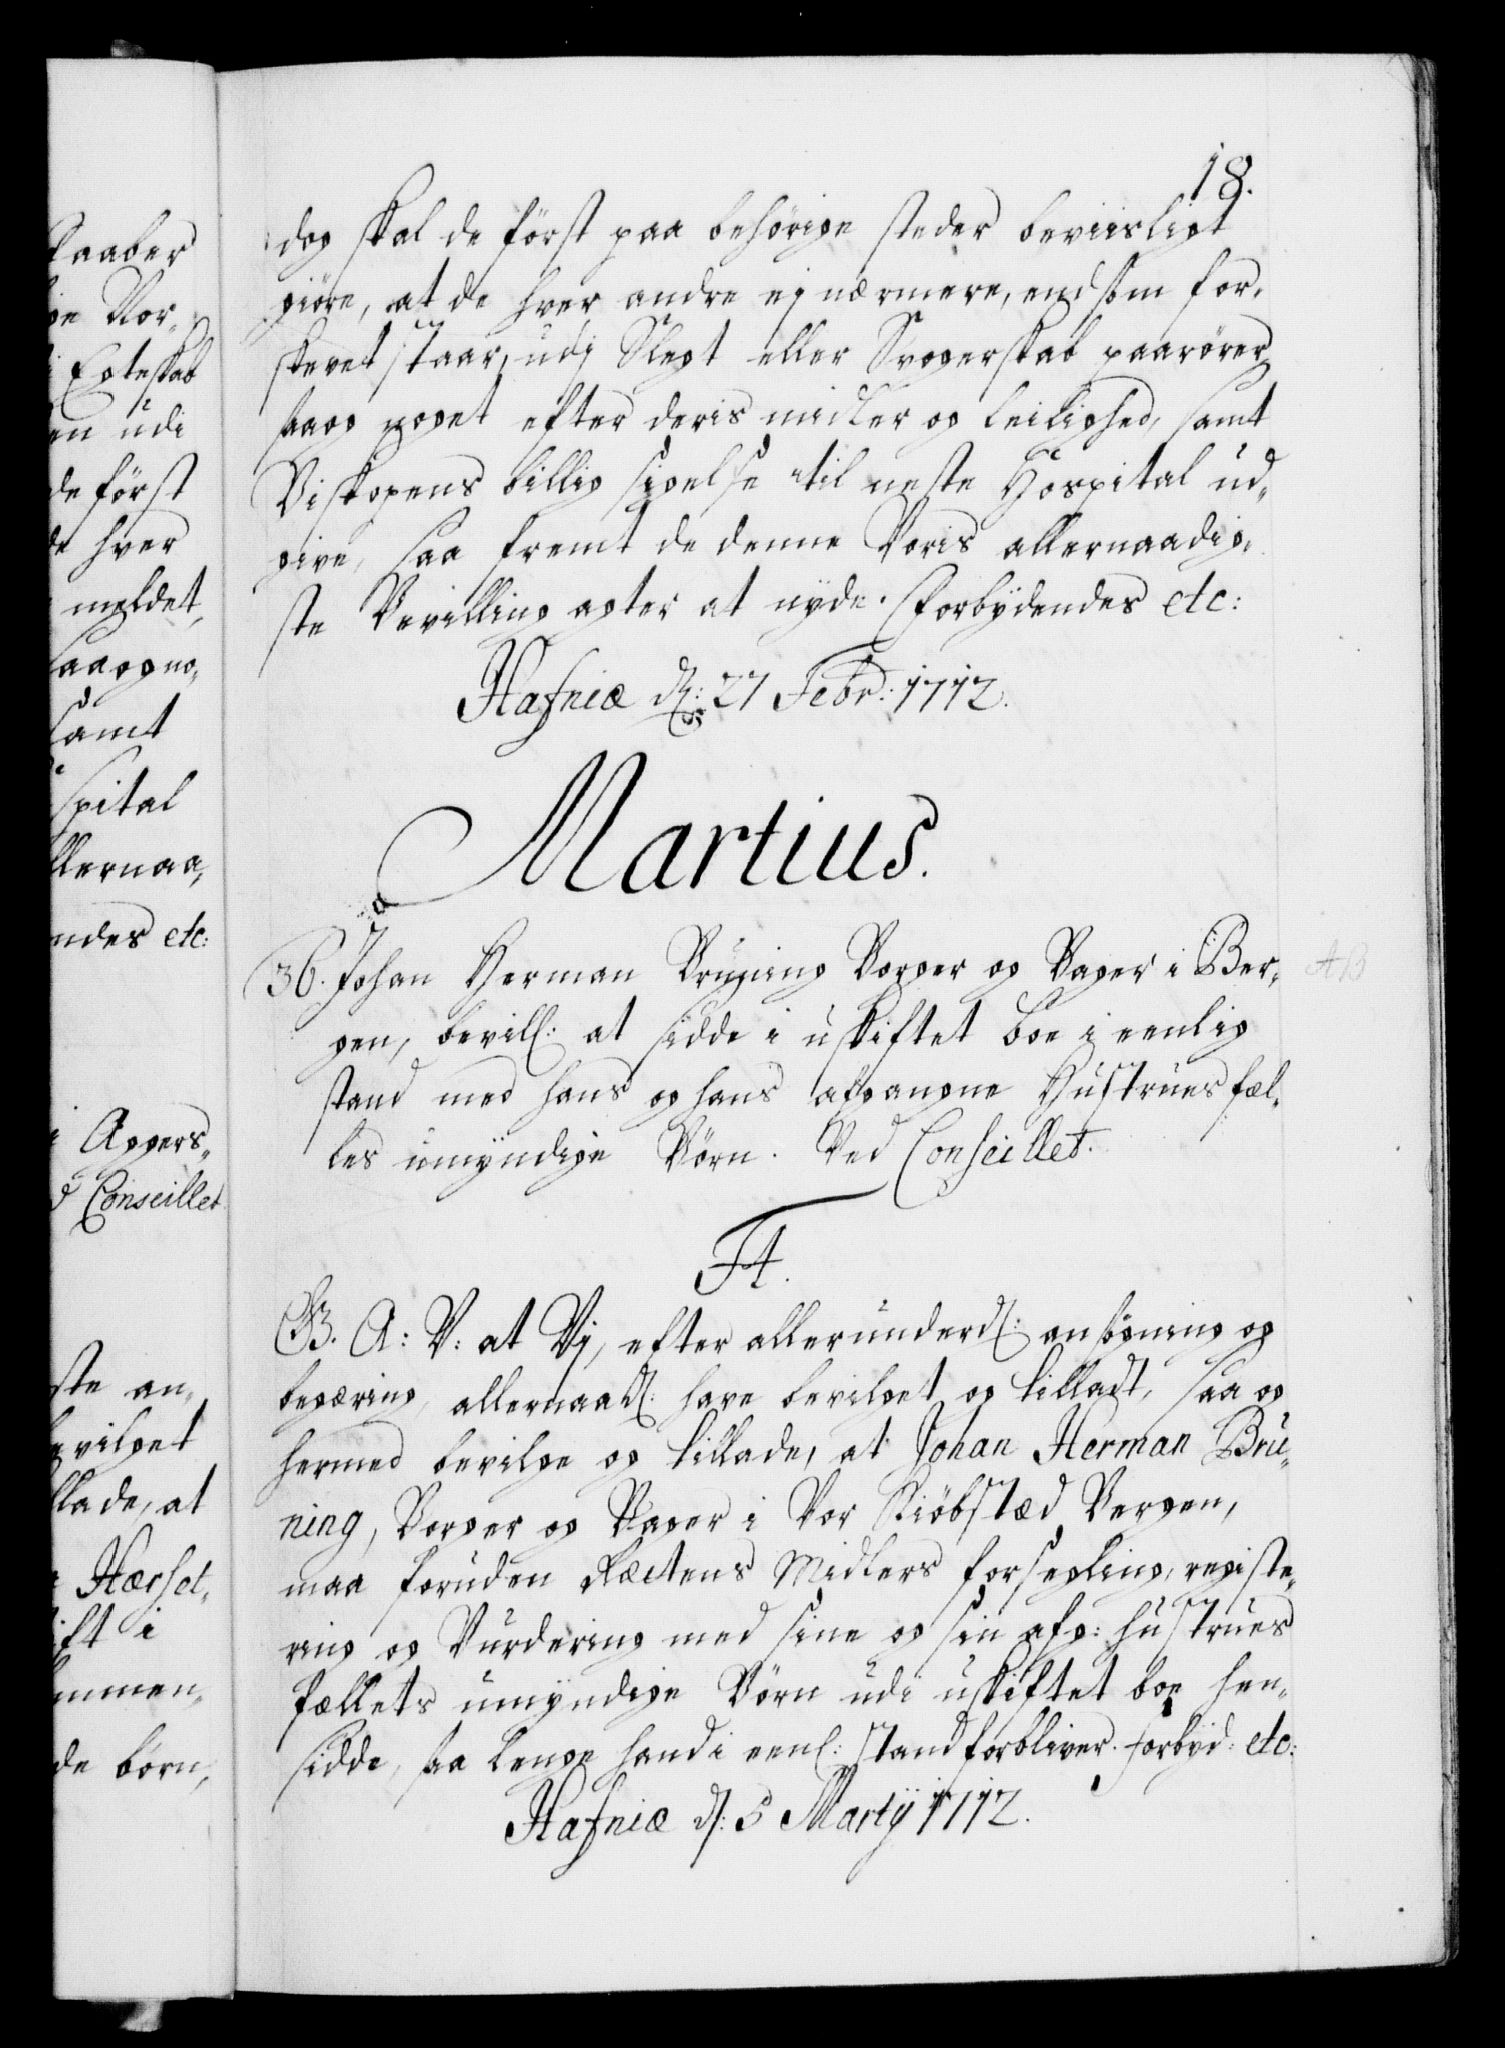 18.
dog skal de först paa behörige steder beviisligt
giöre, at de hver andre ej nærmere, end som for„
skevet staar, udj Slegt eller Svogerskab paarörer
saa og noget efter deris midler og leilighed, samt
Biskopens billig sigelse til neste Hospital ud„
give, saa fremt de denne Voris allernaadig„
ste Bevilling agter at nyde. Forbydendes etc:
Hafniæ d: 27 Febr: 1712.
Martius.
36. Johan Herman Bruning Borger og Bager i Ber„
gen, bevilg: at sidde i uskiftet boe i eenlig
stand med hans og hans afgangne Hustrues fæl„
les umyndige Börn. Ved Conseillet.
F4.
G. A: V: at Vj, efter allerunderd: ansögning og
begæring, allernaad: have bevilget og tilladt, saa og
hermed bevilge og tillade, at Johan Herman Bru„
ning, Borger og Bager i Vor Kiöbstæd Bergen,
maa foruden Rættens Midlers forsegling, registe„
ring og Vurdering med sine og sin afg: hustrues
fællets umyndige Börn udi uskiftet boe hen„
sidde, saa lenge hand i eenl: stand forbliver. forbyd: etc:
Hafniæ d: 5 Martij 1712.
AB
kaaber
ge Nor„
i Egteskab
en udi
de först
de hver
meldet,
saa og no„
samt
spital
llernaa„
ndes etc:
i Aggers„
d Conseillet
ste an„
bevilget
llade, at
Hærset„
ift i
mmen„
de börn,